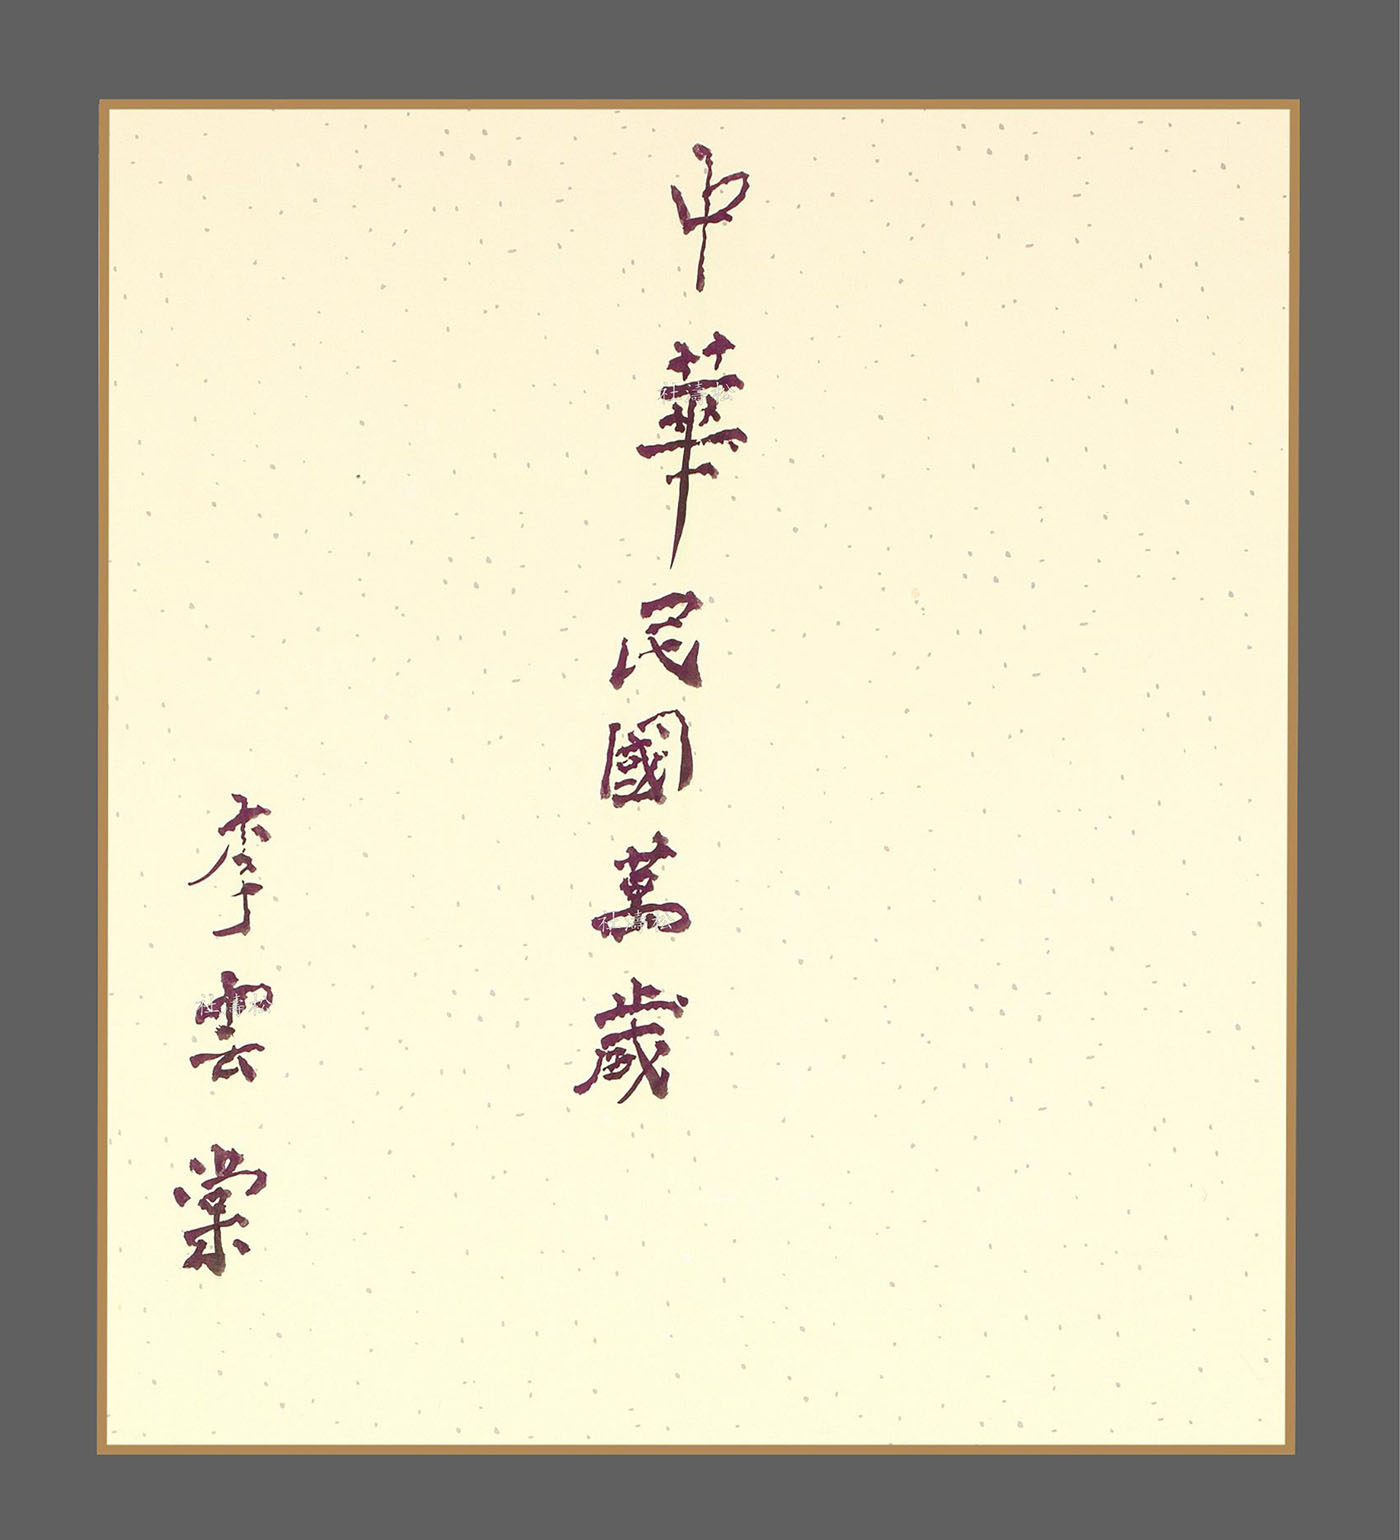 中華民國萬歲
李雲棠